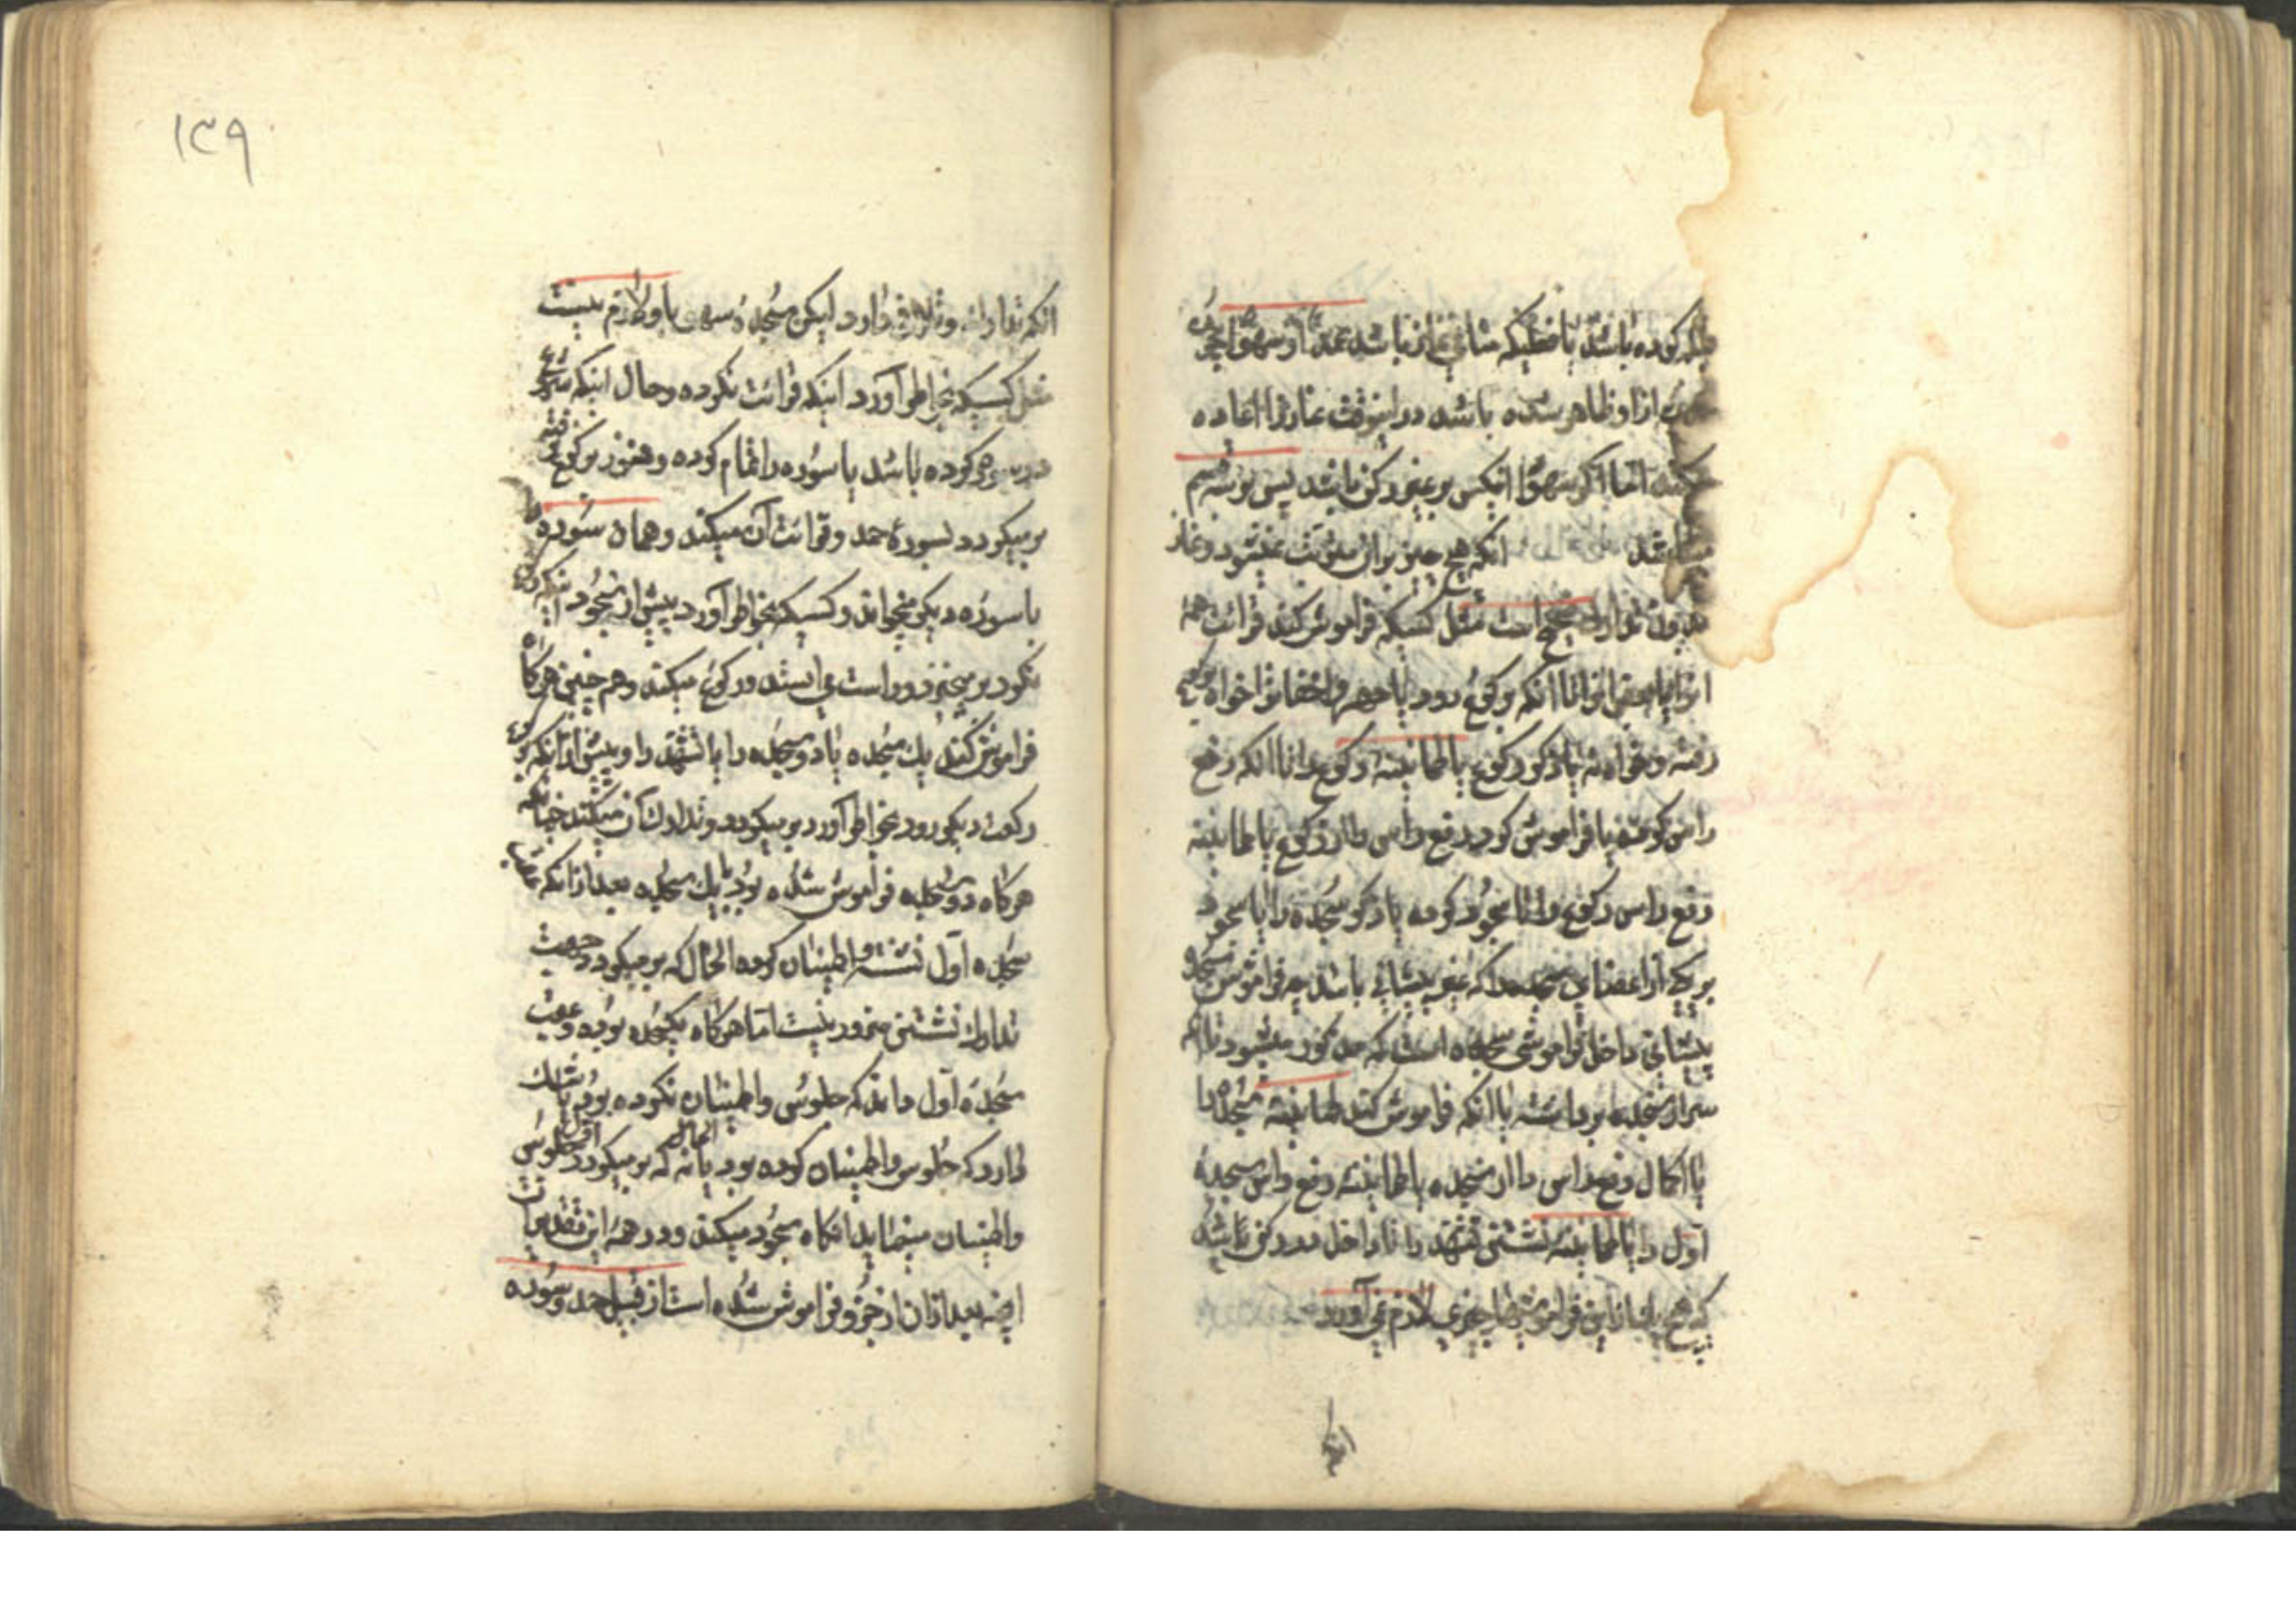 کرده باشد یا فعلیکه منافی نماز باشد عمدا او سهوا چیزی
از او ظاهر شده باشد در اینوقت نماز را اعاده
میکند اما اگر سهو انیکس بر غیر رکن باشد پس بر سه قسم
میباشد آنکه هیچ چیز بران مترتب نمیشود و نماز
بدون تدارک صحیح است مثل کسیکه فراموش کند قرائت
را یا بعض انرا تا آنکه برکوع رود یا جهر و اخفاترا خواه برکوع
رفته و خواه نه یا ذکر رکوع یا طمانینه رکوع را تا انکه رفع
راس کرده یا فراموش کرد رفع راس را از رکوع یا طمانینه
رفع راس رکوع را تا سجود کرده یا ذکر سجده را یا سجود
بر یکی از اعضای سجده را که غیر پیشانی باشد چه فراموش سجده
پیشانی داخل فراموشی سجده است که مذکور میشود تا انکه
سر از سجده برداشته یا انکه فراموش کند طمانینه سجده را
یا اکمال رفع راس را از سجده یا طمانینه رفع راس سجدهٔ
اول را یا طمانینه نشستن تشهد را تا داخل در رکن باشد
که هیچ یک از این فراموشیها چیزی لازم نمی‌آورد
۱۳۹
انکه تدارک و تلافی دارد لیکن سجدهٔ سهوی با او لازم نیست
مثل کسیکه بخاطر آورد اینکه قرائت نکرده و حال اینکه شروع
در سوره کرده باشد یا سوره را تمام کرده و هنوز برکوع نرفته
بر میگردد بسورهٔ حمد و قرائت آن میکند و همان سوره
یا سوره دیگر میخواند و کسیکه بخاطر آورد پیش از سجود اینکه رکوع
نکرد بر میخیزد و راست می ایستد و رکوع میکند و هم چنین هرگاه
فراموش کند یک سجده یا دو سجده را یا تشهد را و پیش از آنکه برکوع
رکعت دیگر رود بخاطر آورد بر میگردد و تدارک آن میکند چنانکه
هرگاه دو سجده فراموش شده بود یا یک سجده بعد از آنکه
سجده اول نشسته و اطمینان کرده الحال که بر میگردد جهت
تدارک نشستن ضرور نیست اما هرگاه یکسجده بوده و عقب
سجدهٔ اول داند که جلوس و اطمینان نکرده بود یا شک
دارد که جلوس و اطمینان کرده بود یا نه الحال که بر میگردد اول جلوس
و اطمینان مینماید انگاه سجود میکند و در همهٔ این تقدیرات
انچه بعد از ان از جزو فراموش شده است از قبیل حمد و سوره